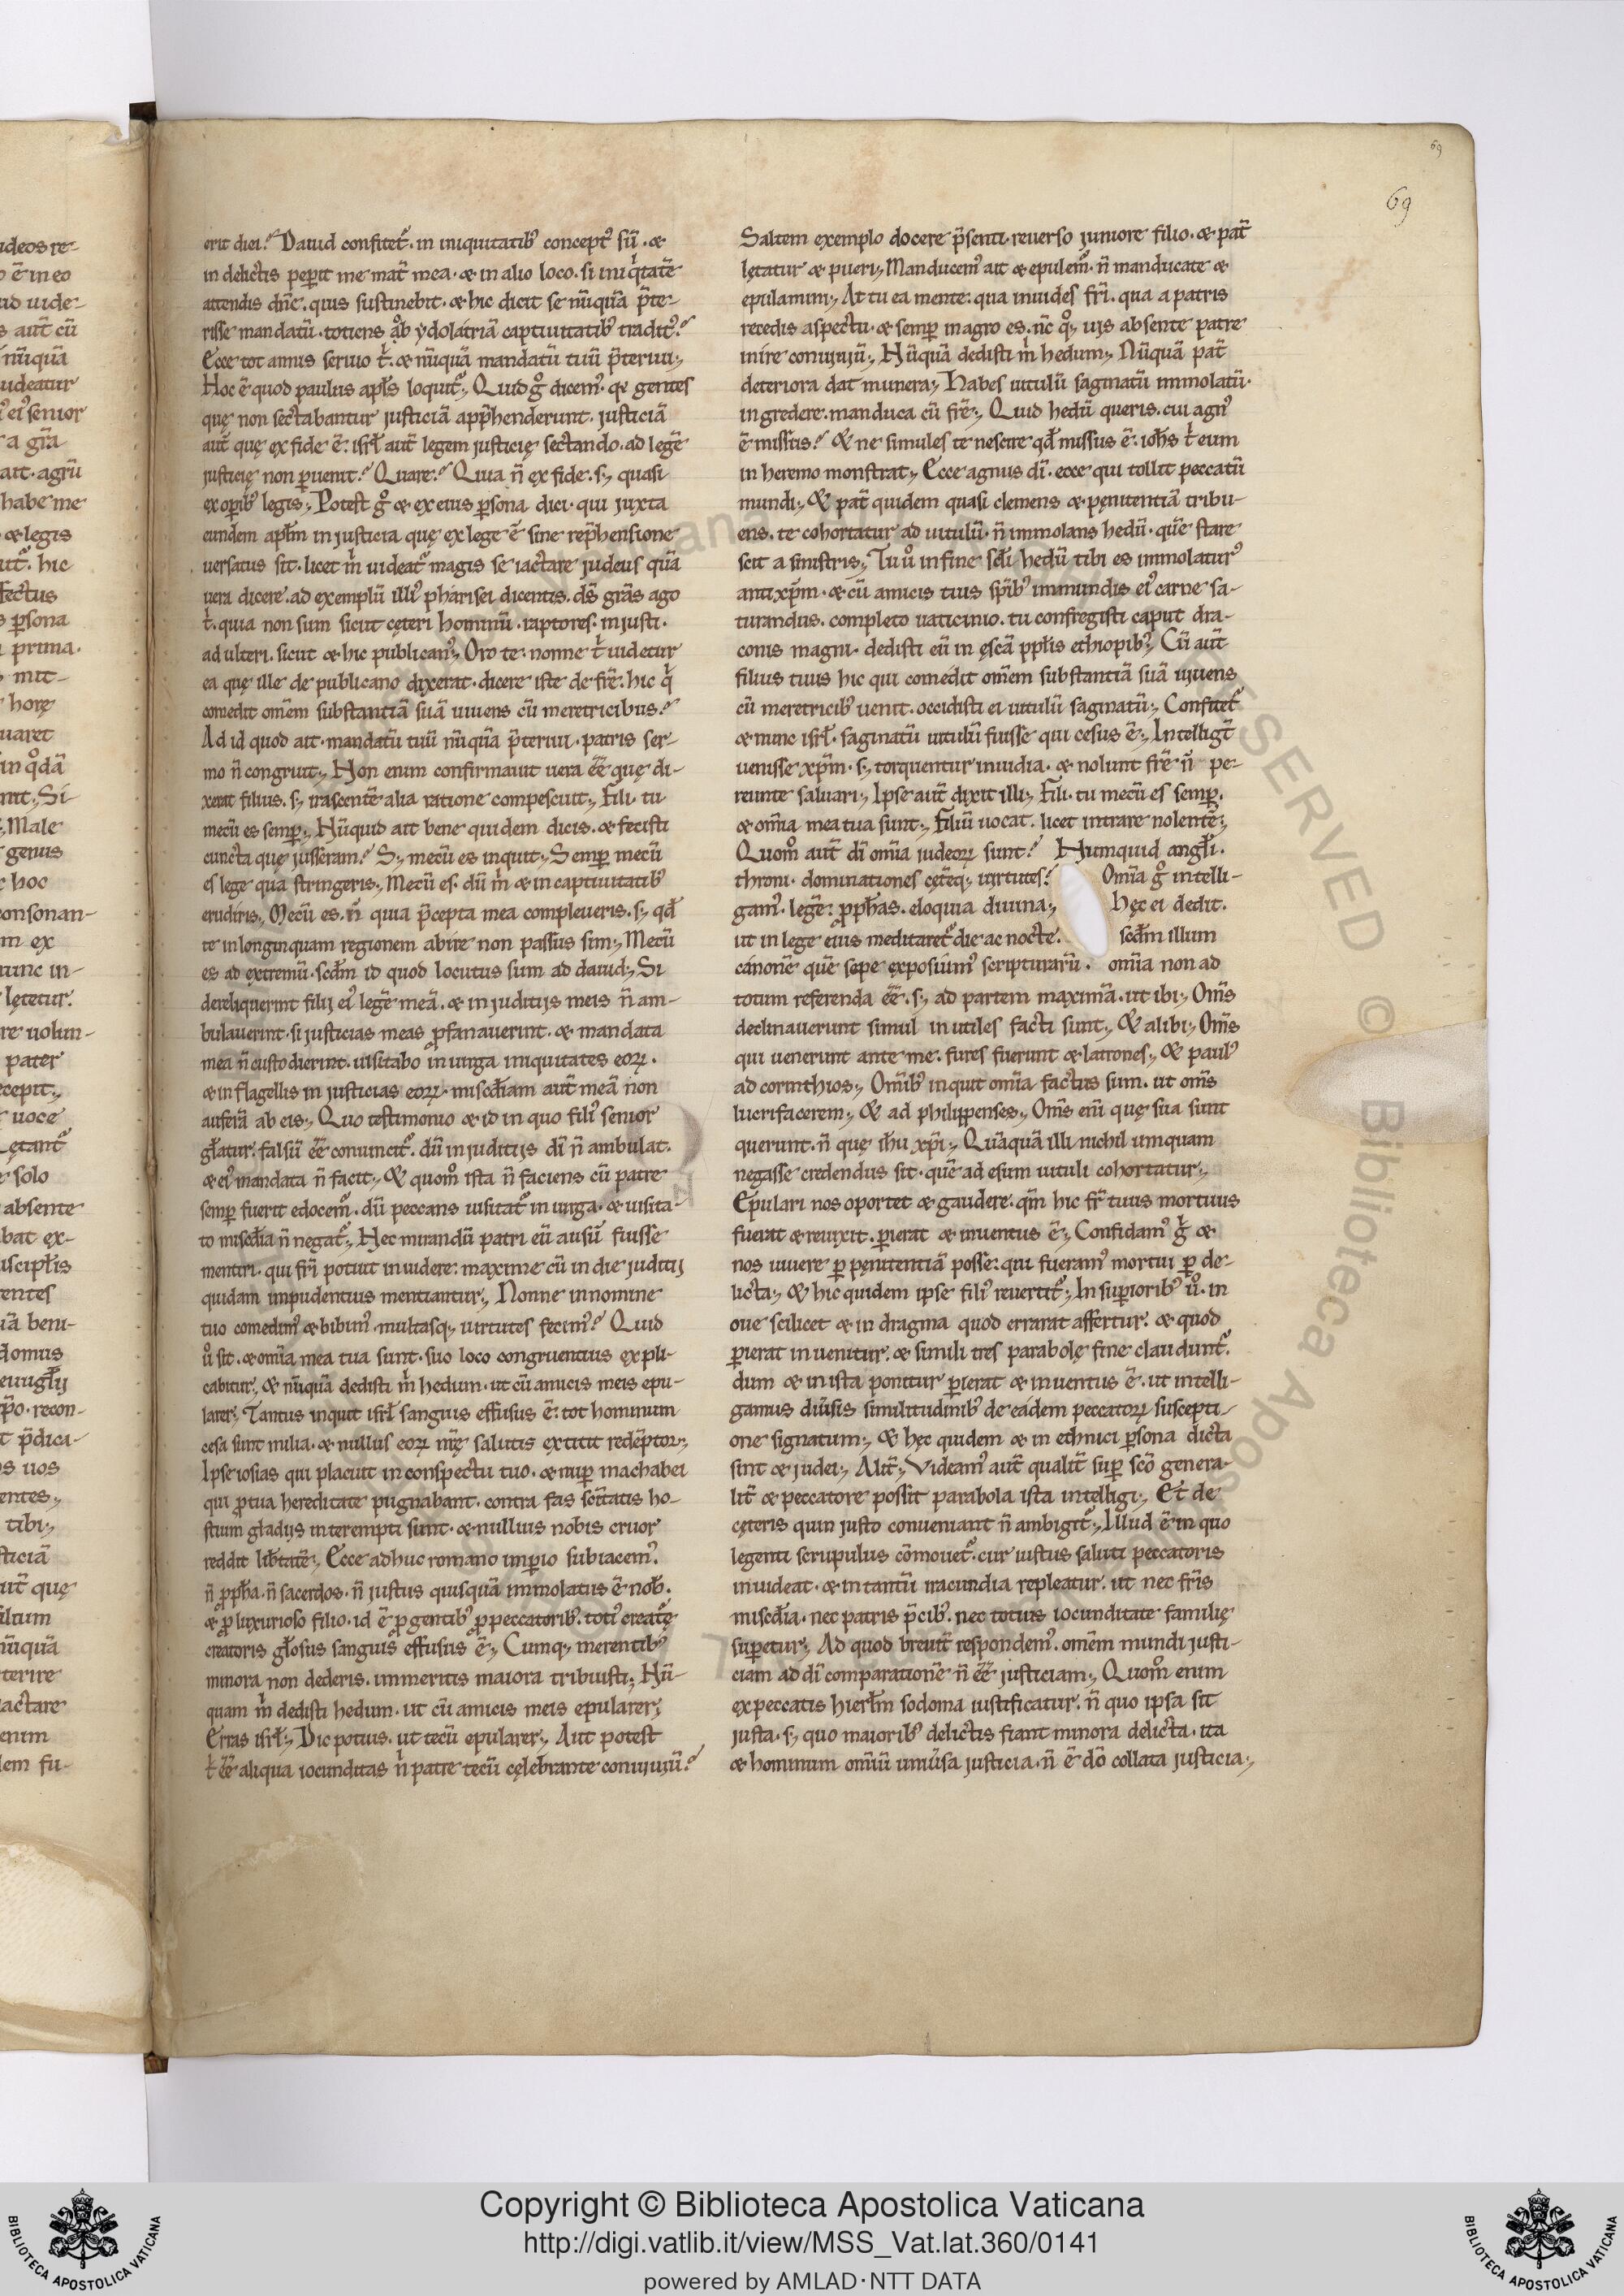 69
69
erit dici? Dauid confitet᷑. in iniquitatibꝰ conceptꝰ sū. &
in delictis peꝑit me mat̄ mea. & in alio loco. si iniqͥtatē
attendis dn̄e. quis sustinebit. & hic dicit se nūquā p̄te-
risse mandatū. totiens ob ydolatriā captiuitatibꝰ traditꝰ?
Ecce tot annis seruio tͥ. & nūquā mandatū tuū p̄teriui;
Hoc ē quod paulus apl̄s loquit᷑; Quid gͦ dicemꝰ. qͥ gentes
quę non sectabantur justiciā app̄henderunt. justiciā
aut̄ quę ex fide ē. isrl̄ aut̄ legem justicię sectando. ad legē
justicię non ꝑuenit? Quare? Quia n̄ ex fide. s; quasi
ex oꝑibꝰ legis; Potest gͦ & ex eius ꝑsona dici. qui juxta
eundem apl̄m in justicia quę ex lege ē sine rep̄hensione
uersatus sit. licet mͥ uideat᷑ magis se iactare judeus quā
uera dicere. ad exemplū illiꝰ pharisei dicentis. ds̄ gr̄as ago
tͥ. quia non sum sicut cęteri hominū. raptores. injusti.
adulteri. sicut & hic publicanꝰ; Oro te. nonne tͥ uidetur
ea quę ille de publicano dixerat. dicere iste de fr̄e. hic qͥ
comedit om̄em substantiā suā uiuens cū meretricibus?
Ad id quod ait. mandatū tuū nūquā p̄teriui. patris ser-
mo n̄ congruit; Non enim confirmauit uera ēē quę di-
xerat filius. s; irascentē alia ratione compescuit; Fili. tu
mecū es semꝑ; Nūquid ait bene quidem dicis. & fecisti
cuncta quę jusseram? S; mecū es inquit; Semper mecū
es lege qua stringeris; Mecū es. dū mͥ & in captiuitatibꝰ
erudiris; Mecū es. n̄ quia p̄cepta mea compleueris. s; qd̄
te in longinquam regionem abire non passus sim; Mecū
es ad extremū. scd̄m id quod locutus sum ad dauid; Si
dereliquerint filij eiꝰ legē meā. & in juditijs meis n̄ am-
bulauerint. si justicias meas ꝓfanauerint. & mandata
mea n̄ custodierint. uisitabo in uirga iniquitates eoꝝ.
& in flagellis injusticias eoꝝ. misc̄diam aut̄ meā non
auferā ab eis; Quo testimonio & id in quo filiꝰ senior
gl̄atur. falsū ēē conuincit᷑. dū in juditijs di̅ n̄ ambulat.
& eiꝰ mandata n̄ facit; Et quom̊ ista n̄ faciens cū patre
semꝑ fuerit edocemꝰ. dū peccans uisitat᷑ in uirga. & uisita-
to misc̄dia n̄ negat᷑; Nec mirandū patri eū ausū fuisse
mentiri. qui fr̄i potuit inuidere. maxime cū in die juditij
quidam impudentius mentiantur; Nonne in nomine
tuo comedimꝰ & bibimꝰ. multasq; uirtutes fecimꝰ? Quid
uͦ sit. & om̄ia mea tua sunt. suo loco congruentius expli-
cabitur; & nūquā dedisti mͥ hedum. ut cū amicis meis epu-
larer; Tantus inquit isrl̄ sanguis effusus ē. tot hominum
cesa sunt milia. & nullus eoꝝ nr̄ę salutis extitit redēptor;
Ipse iosias qui placuit in conspectu tuo. & nuꝑ machabei
qui ꝓ tua hereditate pugnabant. contra fas sc̄itatis ho-
stium gladijs interempti sunt. & nullius nobis cruor
reddit lib̄tatē; Ecce adhuc romano imꝑio subiacemꝰ.
n̄ ꝓph̄a. n̄ sacerdos. n̄ justus quisquā immolatus ē nob̄.
& ꝓ luxurioso filio. id ē ꝓ gentibꝰ ꝓ peccatoribꝰ. totiꝰ creatę
creatoris gl̄osus sanguis effusus ē; Cumq; merentibꝰ
minora non dederis. immeritis maiora tribuisti; Nū-
quam mͥ dedisti hedum. ut cū amicis meis epularer;
Erras isrl̄; Dic potius. ut tecū epularer; Aut potest
tͥ ēē aliqua iocunditas n̄ patre tecū cęlebrante conuiuiū?
Saltem exemplo docere p̄senti. reuerso juniore filio. & pat̄
lętatur & pueri; Manducemꝰ ait & epulemꝰ. n̄ manducate &
epulamini; At tu ea mente. qua inuides fr̄i. qua a patris
recedis aspectu. & semꝑ in agro es. nc̄ qͦ; uis absente patre
inire conuiuiū; Nūquā dedisti mͥ hedum; Nūquā pat̄
deteriora dat munera; Habes uitulū saginatū immolatū.
ingredere. manduca cū fr̄e; Quid hedū queris. cui agnꝰ
ē missus? Et ne simules te nescire qd̄ missus ē. ioh̄s tͥ eum
in heremo monstrat; Ecce agnus di̅. ecce qui tollit peccatū
mundi; Et pat̄ quidem quasi clemens & pęnitentiā tribu-
ens. te cohortatur ad uitulū. n̄ immolans hedū. quē stare
scit a sinistris; Tu uͦ in fine scl̄i hedū tibi es immolaturꝰ
antixp̄m. & cū amicis tuis sp̄ibꝰ immundis eiꝰ carne sa-
turandus. completo uaticinio. tu confregisti caput dra-
conis magni. dedisti eū in ęscā ppl̄is ethiopibꝰ; Cū aut̄
filius tuus hic qui comedit om̄em substantiā suā uiuens
cū meretricibꝰ uenit. occidisti ei uitulū saginatū; Confitet᷑
& nunc isrl̄. saginatū uitulū fuisse qui cesus ē; Intelligit̄
uenisse xp̄m. s; torquentur inuidia. & nolunt fr̄e n̄ pe-
reunte saluari; Ipse aut̄ dixit illi; Fili. tu mecū es semꝑ.
& om̄ia mea tua sunt; Filiū uocat. licet intrare nolentē;
Quom̊ aut̄ di̅ om̄ia iudeoꝝ sunt? Numquid angl̄i.
throni. dominationes cęteq; uirtutes? Om̄ia gͦ intelli-
gamꝰ. legē. ꝓph̄as. eloquia diuina; Hęc ei dedit.
ut in lege eius meditaret᷑ die ac nocte. scd̄m illum
canonē quē sepe exposuimꝰ scripturarū. om̄ia non ad
totum referenda ēē. s; ad partem maximā. ut ibi; Om̄s
declinauerunt simul inutiles facti sunt; Et alibi; Om̄s
qui uenerunt ante me. fures fuerunt & latrones; Et paulꝰ
ad corinthios; Om̄ibꝰ inquit om̄ia factus sum. ut om̄s
lucrifacerem; Et ad philippenses; Om̄s eni̅ quę sua sunt
querunt. n̄ quę ih̄u xp̄i; Quāquā illi nichil umquam
negasse credendus sit. quē ad esum uituli cohortatur;
Epulari nos oportet & gaudere. qm̄ hic fr̄ tuus mortuus
fuerat & reuixit. ꝑierat & inuentus ē; Confidamꝰ gͥ &
nos uiuere ꝑ pęnitentiā posse. qui fueramꝰ mortui ꝑ de-
licta; Et hic quidem ipse filiꝰ reuertit᷑; In suꝑioribꝰ uͦ. in
oue scilicet & in dragma quod errarat affertur. & quod
ꝑierat inuenitur. & simili tres parabolę fine claudunt᷑.
dum & in ista ponitur ꝑierat & inuentus ē. ut intelli-
gamus diūsis similitudinibꝰ de eadem peccatoꝝ suscepti-
one signatum; Et hęc quidem & in ethnici ꝑsona dicta
sint & judei; Alit̄; Videamꝰ aut̄ qualit̄ suꝑ sc̄o genera-
lit̄ & peccatore possit parabola ista intelligi; Et de
cęteris quin justo conueniant n̄ ambigit᷑; Illud ē in quo
legenti scrupulus cōmouet᷑. cur iustus saluti peccatoris
inuideat. & in tantū iracundia repleatur. ut nec fr̄is
misc̄dia. nec patris p̄cibꝰ. nec totius iocunditate familię
suꝑetur; Ad quod breuit̄ respondemꝰ. omēm mundi justi-
ciam ad di̅ comparationē n̄ ēē justiciam; Quom̊ enim
ex peccatis hierl̄m sodoma iustificatur. n̄ quo ipsa sit
justa. s; quo maioribꝰ delictis fiant minora delicta. ita
& hominum om̄iū uniūsa justicia. n̄ ē dō collata justicia;
Copyright © Biblioteca Apostolica Vaticana
http://digi.vatlib.it/view/MSS_Vat.lat.360/0141
powered by AMLAD·NTT DATA
BIBLIOTECA APOSTOLICA VATICANA
BIBLIOTECA APOSTOLICA VATICANA